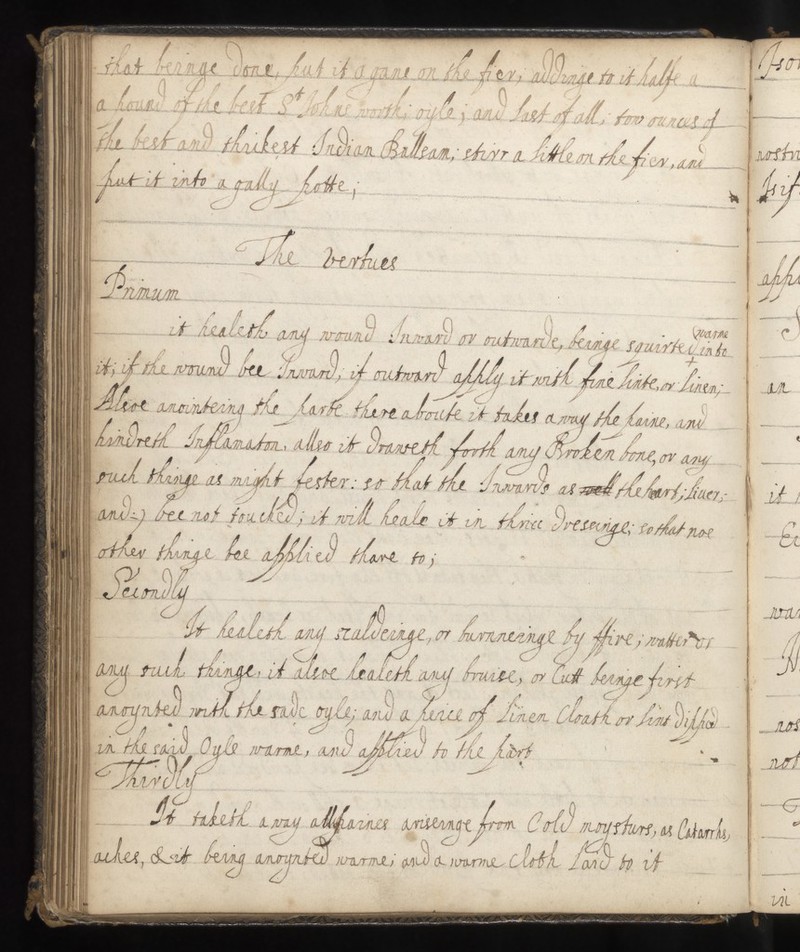 that beinge done, put it agane on the fier; addinge to it halfe a
a pound of the best St Johns worth; oyle; and last of all; tow ounces of
the best and thikest Indian Ballsam; stirr a little on the fier, and
put it into a gally potte;
The vertues
Primum
it healeth any wound Inward or outwarde, beinge squirted warme into
it; if the wound bee Inward; if outward apply it with fine linte, or linen;
Alsoe anointeing the parte there aboute it takes away the paine, and
hindreth Inflamaton, allso it draweth forth any Broken bone, or any
such thinge as might fester: so that the Inwards as well the hart; liver;
and:) bee not touched; it will heale it in thrice dresseinge; so that noe
other thinge bee applied thare to;
Secondly
It healeth any scaldeinge, or burnneinge by ffire; watter or
any such thinge, it alsoe healeth any bruise, or Cutt beinge first
anoynted with the sade oyle; and a peice of linen Cloath or lint dipped
in the said Oyle warme, and applied to the part
Thirdly
It taketh away all paines ariseinge from Cold moysturs, as Catarrhs,
aches, & it being anoynted warme; and a warme cloth laid to it
Isou
nostri
appl
an
it
wa
nos
not
in